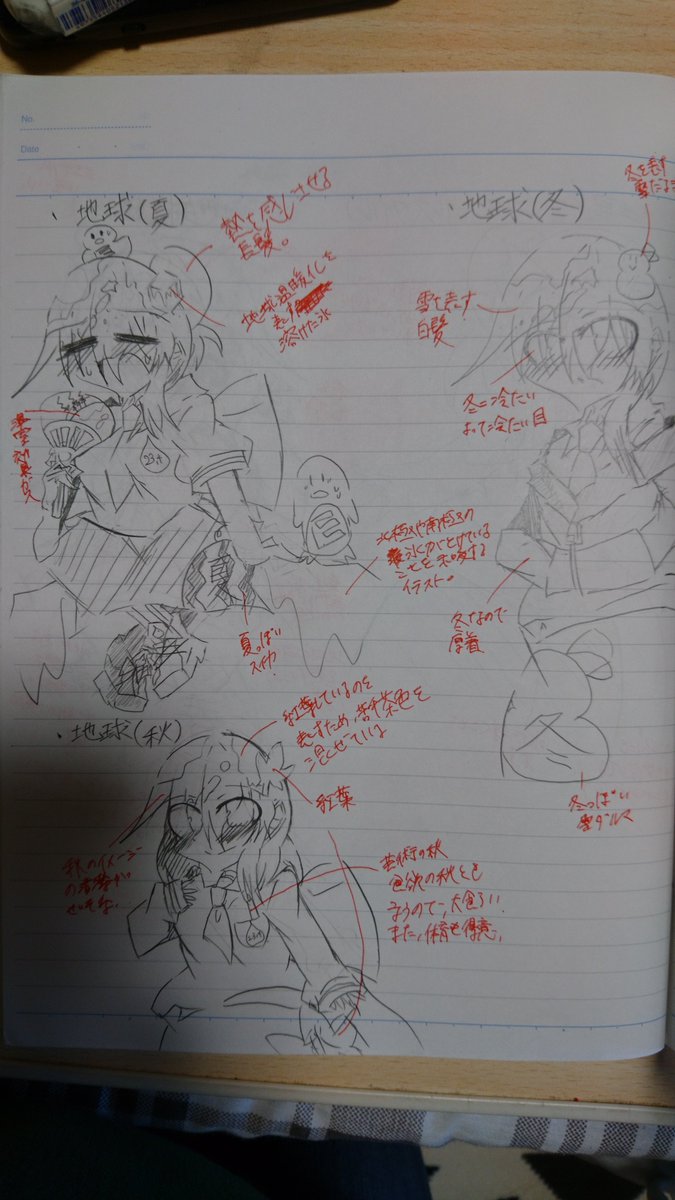 No.
Date
・地球(夏)
熱を感じさせる
長髪。
地球温暖化を
表す
溶けた氷
23.4
夏
夏っぽい
氷極や南極の
氷がとけている
ことを示唆する
イラスト。
・地球(冬)
冬を表す
雪だるま
雪を表す
白髪
冬=冷たい
よって冷たい目
冬なので
厚着
冬
冬っぽい
雪ダルマ
・地球(秋)
紅葉しているのを
表すため、若干茶色を
混ぜている
紅葉
秋のイメージ
23.4
芸術の秋
食欲の秋とも
言うので、大食い。
また、体育も得意。